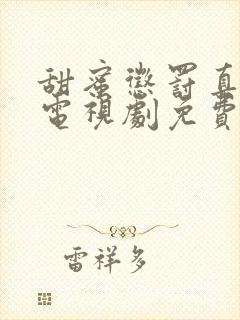 甜蜜懲罰真
電視劇免費
雷祥多